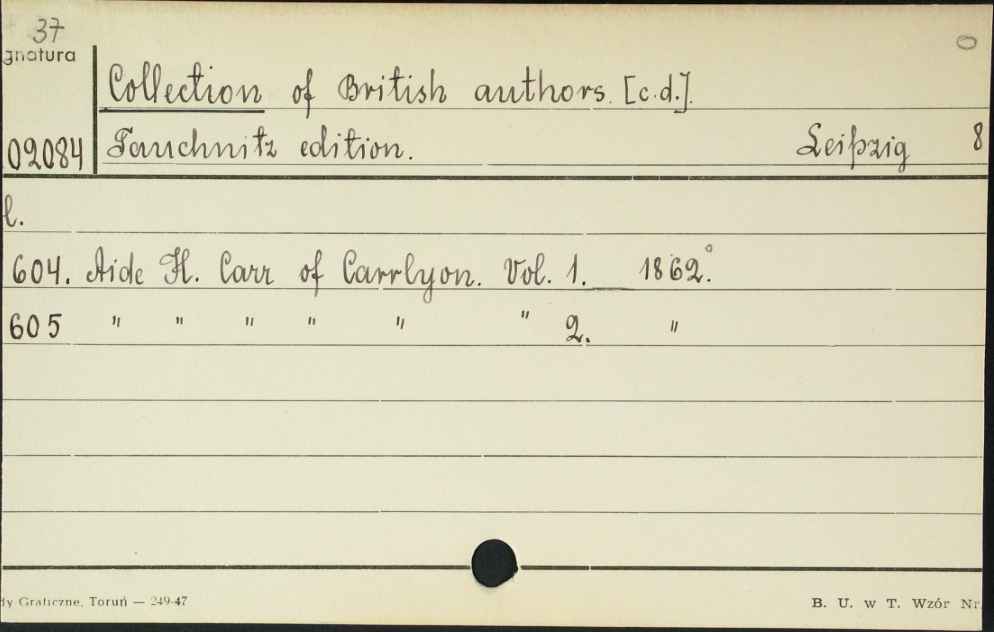 37
gnatura
0
Collection of British authors. [c.d.].
02084 Tauchnitz edition. Leipzig 8
l.
604. Aide H. Carr of Carrlyon. Vol. 1. 1862.°
605 " " " " " " 2. "
dy Graficzne, Toruń — 249-47
B. U. w T. Wzór Nr.